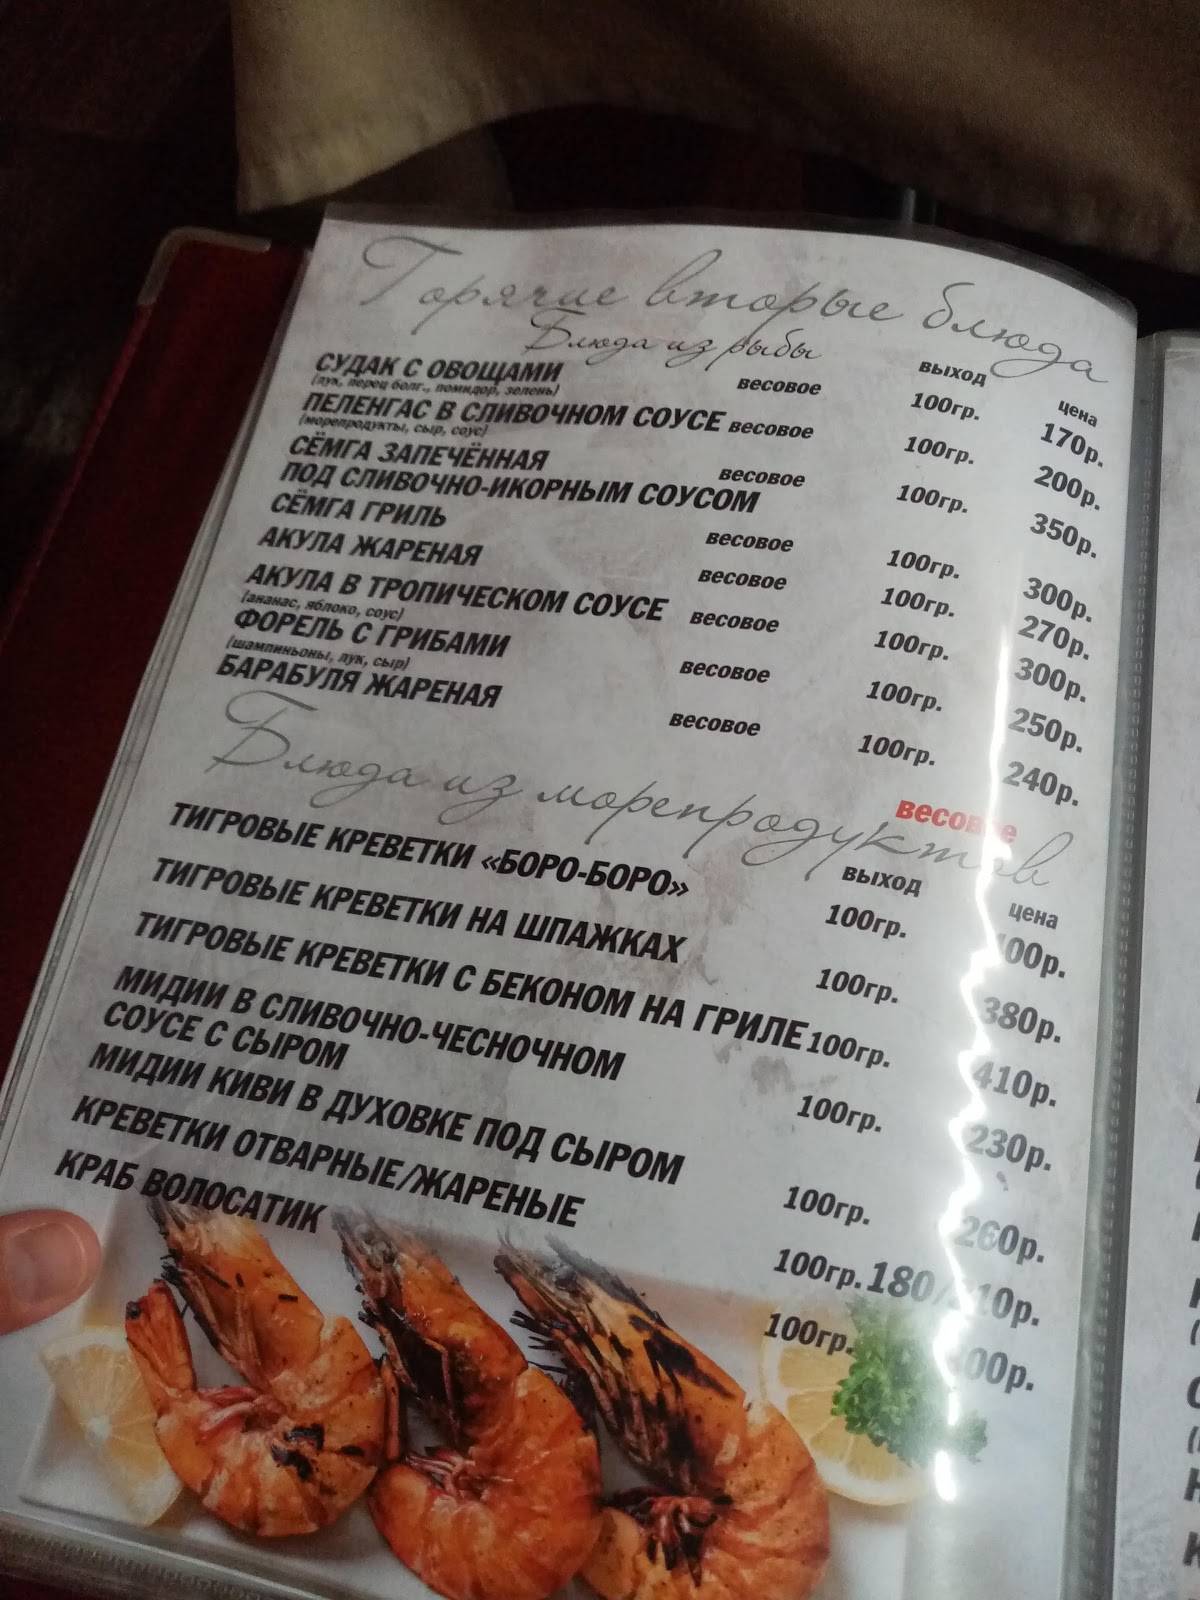 Горячие вторые блюда
Блюда из рыбы
выход цена
СУДАК С ОВОЩАМИ весовое 100гр. 170р.
(лук, перец болг., помидор, зелень)
ПЕЛЕНГАС В СЛИВОЧНОМ СОУСЕ весовое 100гр. 200р.
(морепродукты, сыр, соус)
СЁМГА ЗАПЕЧЁННАЯ весовое 100гр. 350р.
ПОД СЛИВОЧНО-ИКОРНЫМ СОУСОМ
СЁМГА ГРИЛЬ весовое 100гр. 300р.
АКУЛА ЖАРЕНАЯ весовое 100гр. 270р.
АКУЛА В ТРОПИЧЕСКОМ СОУСЕ весовое 100гр. 300р.
(ананас, яблоко, соус)
ФОРЕЛЬ С ГРИБАМИ весовое 100гр. 250р.
(шампиньоны, лук, сыр)
БАРАБУЛЯ ЖАРЕНАЯ весовое 100гр. 240р.
весовое
Блюда из морепродуктов
выход цена
ТИГРОВЫЕ КРЕВЕТКИ «БОРО-БОРО» 100гр.
ТИГРОВЫЕ КРЕВЕТКИ НА ШПАЖКАХ 100гр. 380р.
ТИГРОВЫЕ КРЕВЕТКИ С БЕКОНОМ НА ГРИЛЕ 100гр. 410р.
МИДИИ В СЛИВОЧНО-ЧЕСНОЧНОМ
СОУСЕ С СЫРОМ 100гр. 230р.
МИДИИ КИВИ В ДУХОВКЕ ПОД СЫРОМ 100гр. 260р.
КРЕВЕТКИ ОТВАРНЫЕ/ЖАРЕНЫЕ 100гр.
КРАБ ВОЛОСАТИК 100гр.